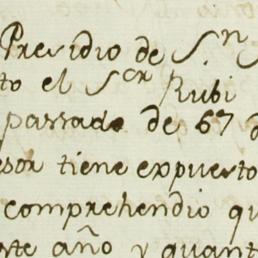 Presidio de S.n S
to el S.or Rubi
passado de 67 d
esor tiene expuesto
comprehendio qu
este año y quant